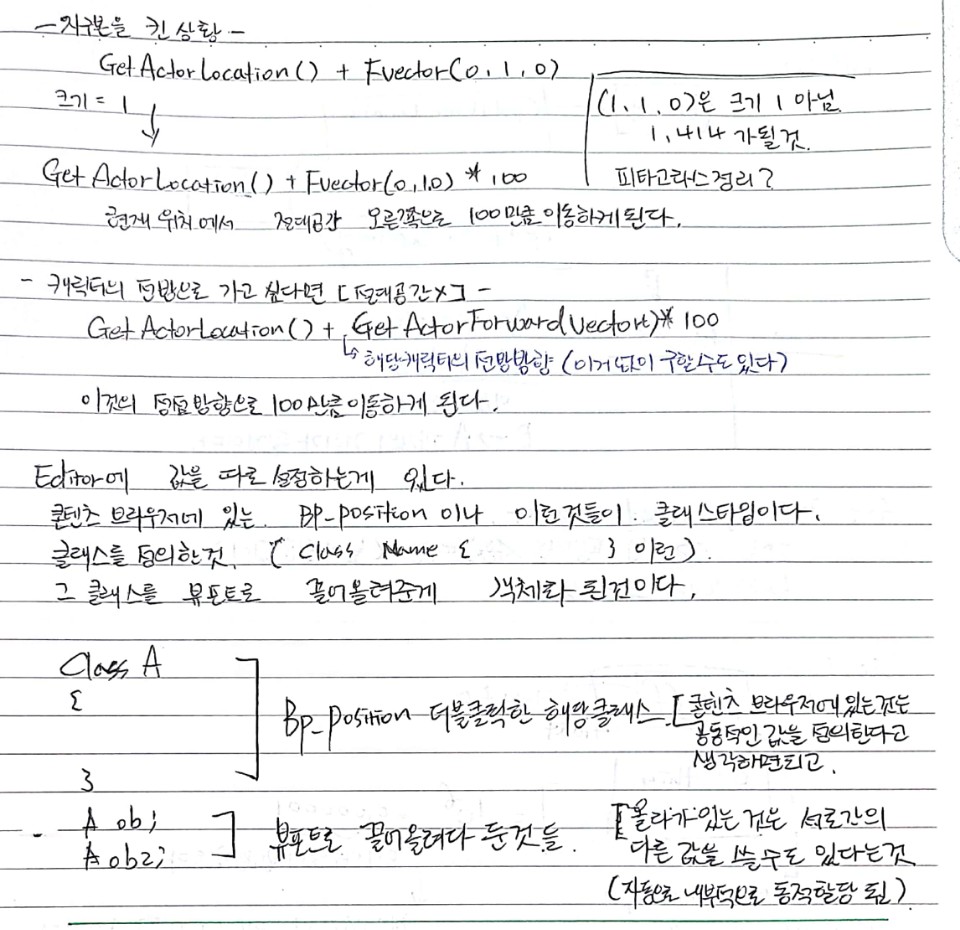 - 지구본을 킨 상황 -
GetActorLocation() + Fvector(0, 1, 0)
크기 = 1
(1, 1, 0)은 크기 1 아님
1,414 가 될것
피타고라스 정리?
Get ActorLocation() + Fvector(0,1,0) * 100
현재 위치에서 절대공간 오른쪽으로 100만큼 이동하게 된다.
- 캐릭터의 전방으로 가고 싶다면 [절대공간X] -
GetActorLocation() + GetActorForwardVector()* 100
↳ 해당캐릭터의 전방방향 (이거 없이 구할수도 있다)
이것의 방향으로 100만큼 이동하게 된다.
Editor에 값을 따로 설정하는게 있다.
콘텐츠 브라우저에 있는 BP_position 이나 이런것들이 클래스타입이다.
클래스를 정의한것. ( Class Name { } 이런 ).
그 클래스를 뷰포트로 끌어올려준게 객체화 된것이다.
Class A
{
}
Bp_position 더블클릭한 해당클래스. [콘텐츠 브라우저에 있는것는
공통적인 값을 정의한다고
생각하면되고.
- A ob;
A ob2;
뷰포트로 끌어올려다 둔것들.
[올라가있는 것은 서로간의
다른 값을 쓸 수도 있다는것
(자동으로 내부적으로 동적할당 됨)